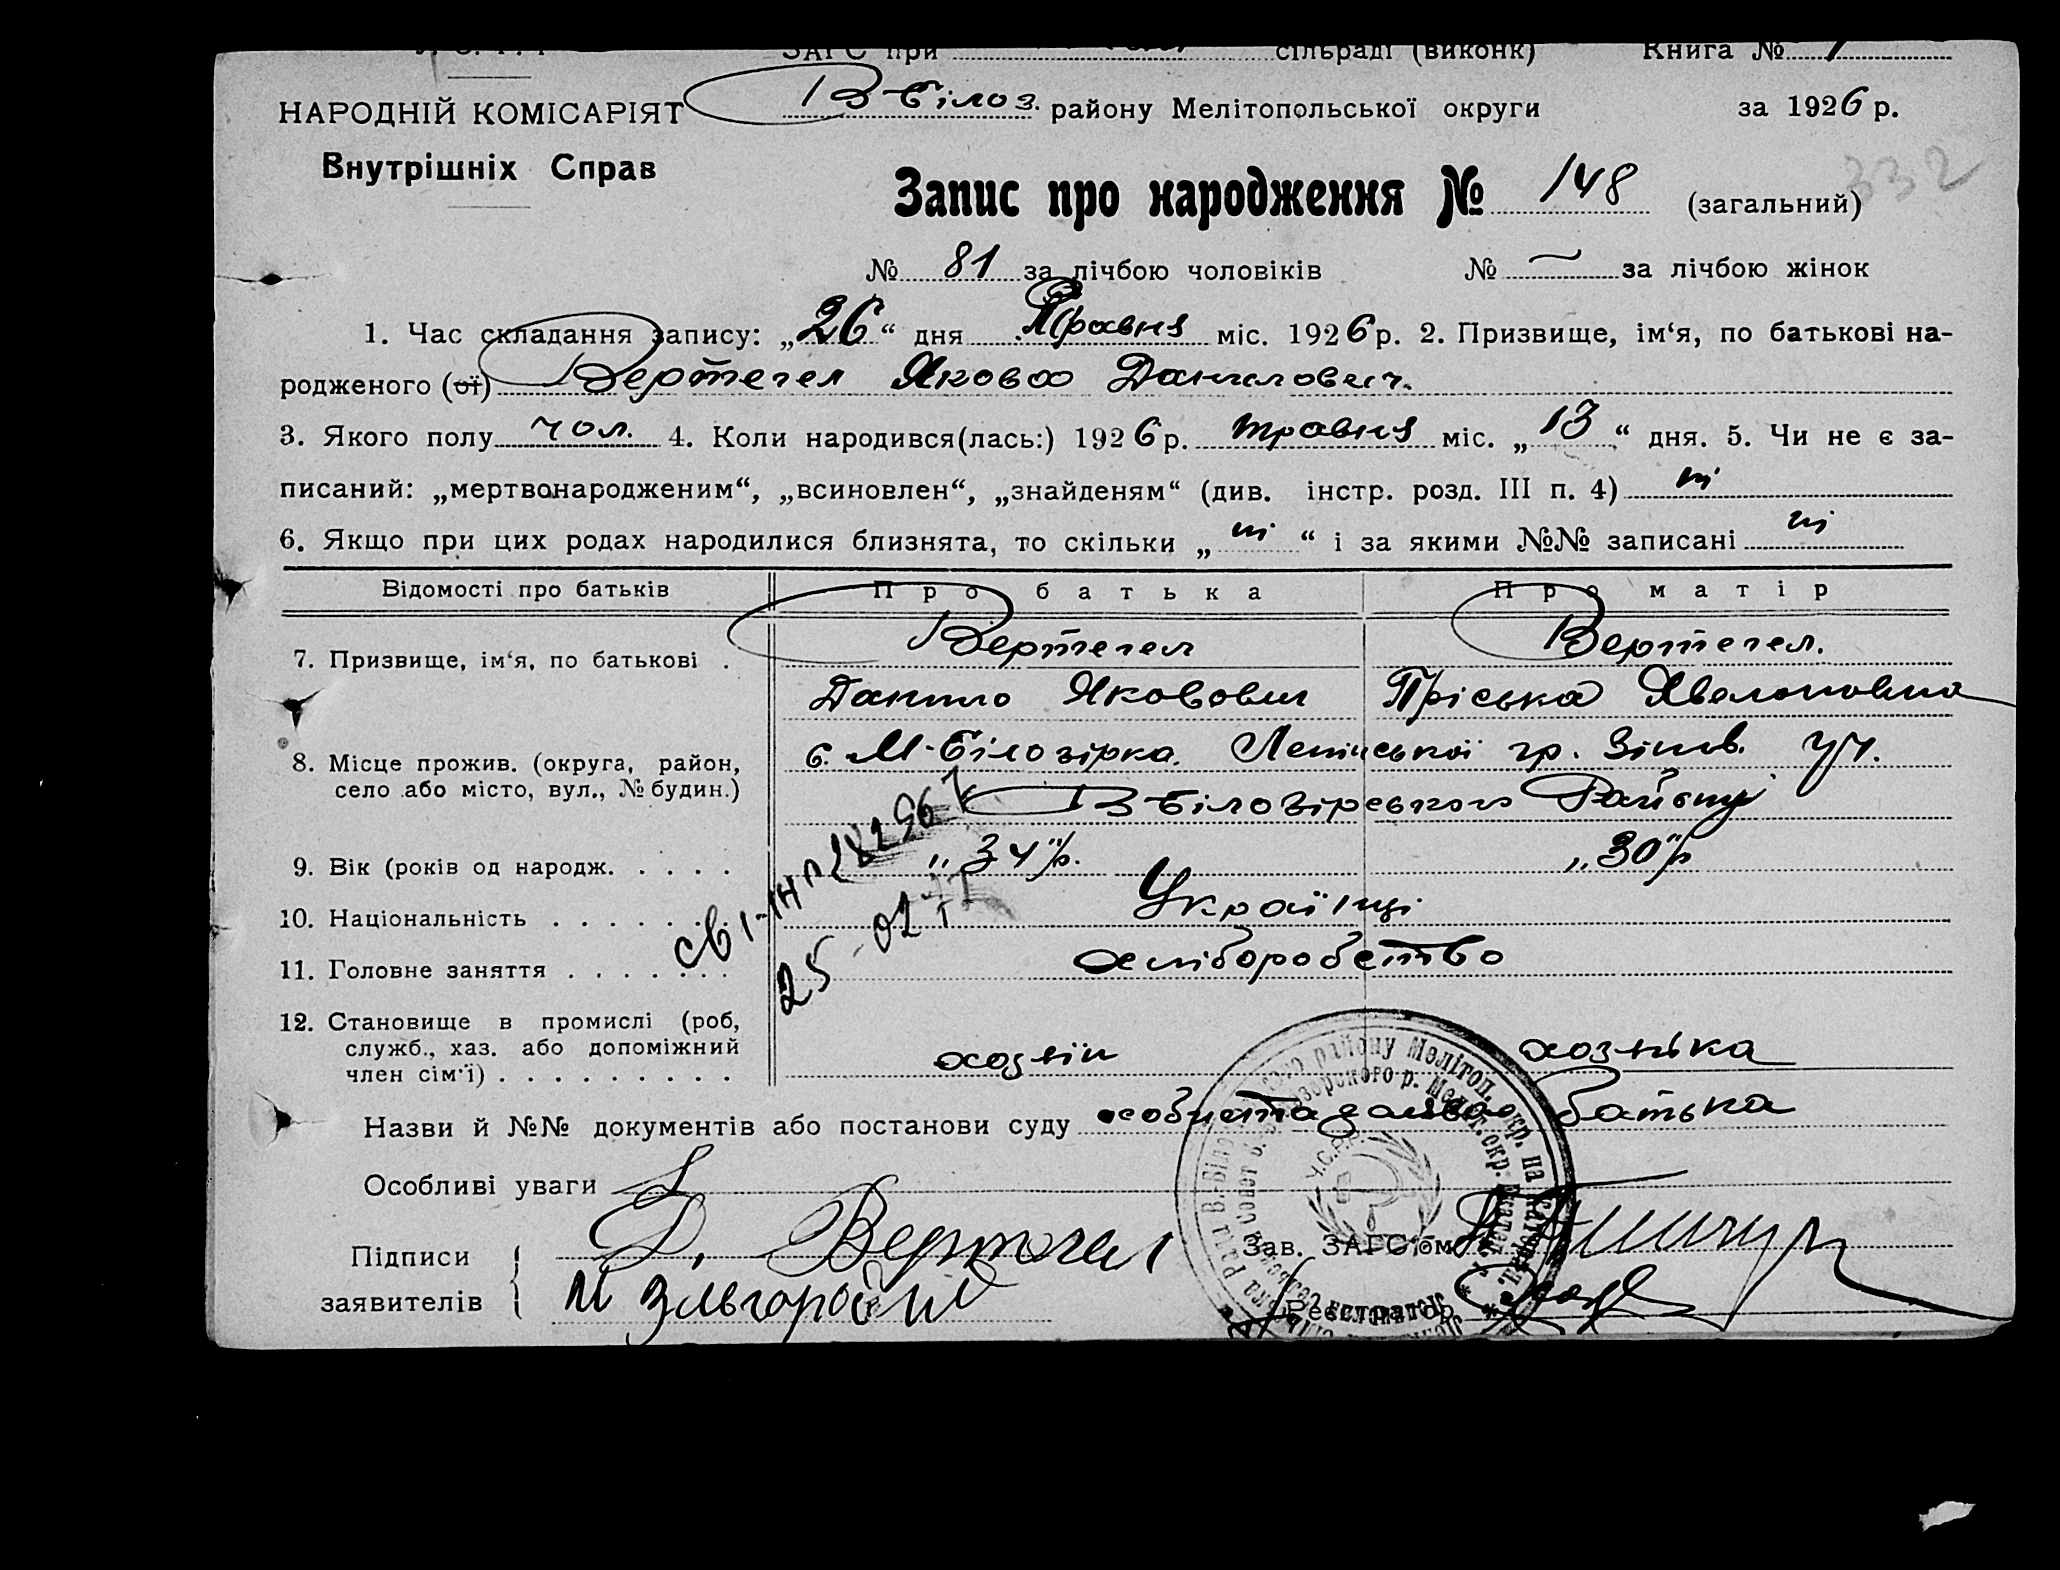 ЗАГС при сільраді (виконк) Книга № 1
НАРОДНІЙ КОМІСАРІЯТ В Білоз. району Мелітопольської округи за 1926 р.
Внутрішніх Справ
Запис про народження № 148 (загальний) 332
№ 81 за лічбою чоловіків № — за лічбою жінок
1. Час складання запису: „26“ дня Травня міс. 1926 р. 2. Призвище, ім‘я, по батькові на-
родженого (ої) Вертегел Яков Данилович.
3. Якого полу чол. 4. Коли народився(лась:) 1926 р. травня міс. „13“ дня. 5. Чи не є за-
писаний: „мертвонародженим“, „всиновлен“, „знайденям“ (див. інстр. розд. III п. 4) ні
6. Якщо при цих родах народилися близнята, то скільки „ні“ і за якими №№ записані ні
Відомості про батьків Про батька Про матір
7. Призвище, ім‘я, по батькові . Вертегел Вертегел.
Данило Якович Пріська
8. Місце прожив. (округа, район, с. М-Білозірка. Ленінської гр.
село або місто, вул., № будин.) В Білозірського Району
9. Вік (років од народж. . . . . „34“ р. „30“ р
10. Національність . . . . . . . Українці
11. Головне заняття . . . . . . . хліборобство
12. Становище в промислі (роб,
служб., хаз. або допоміжний хозяїн хозяйка
член сім‘ї) . . . . . . . . .
Назви й №№ документів або постанови суду особиста заява батька
Особливі уваги
Підписи Д. Вертегел Зав. ЗАГС‘ом
заявителів Реєстратор
25-02
У.С.Р.Р.